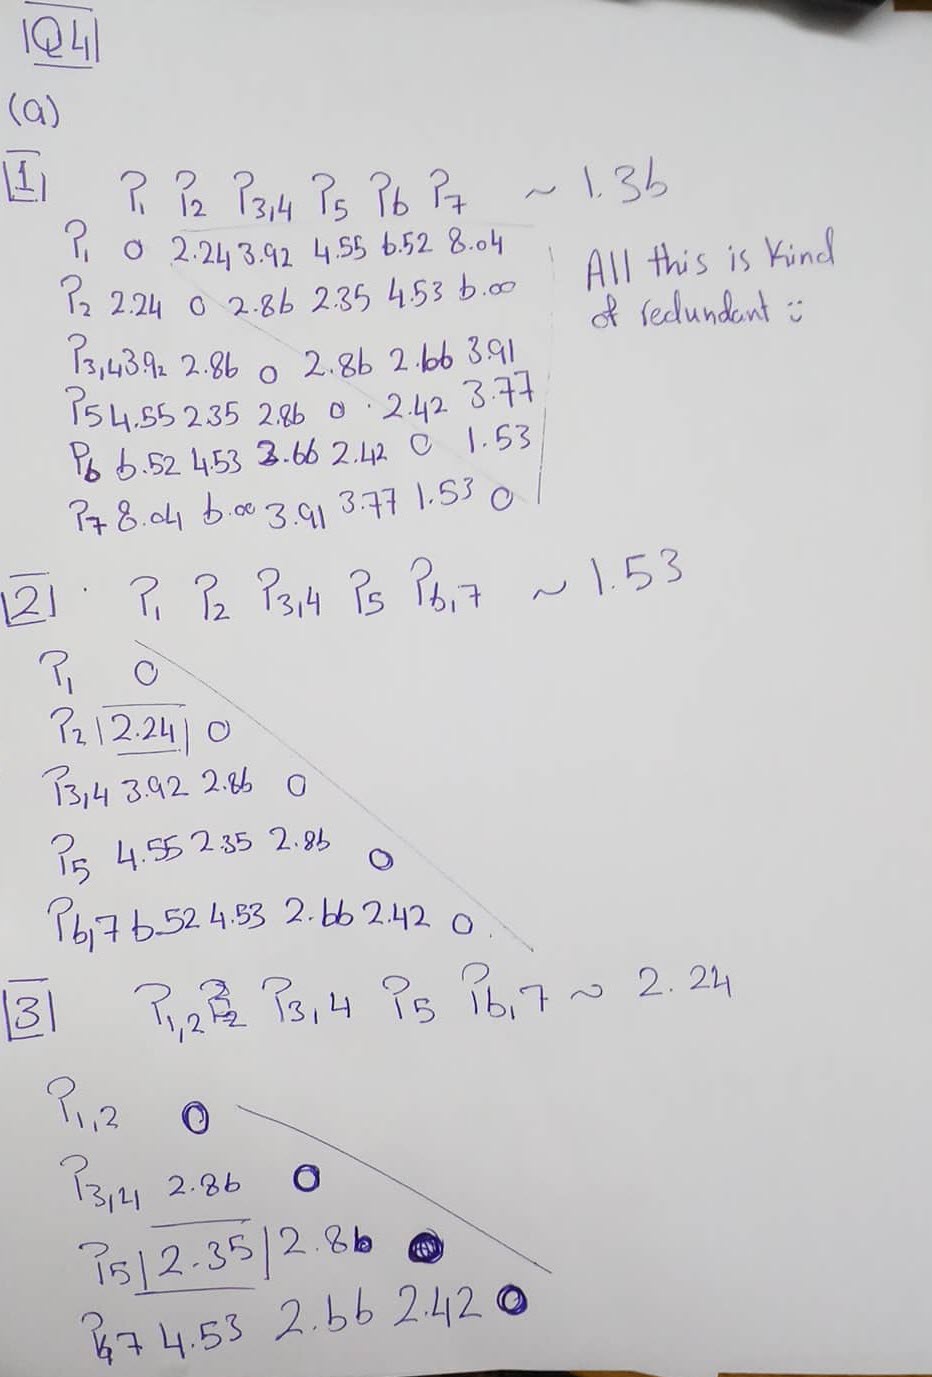 Q4
(a)
1 P1 P2 P3,4 P5 P6 P7 ~ 1.36
P1 0 2.24 3.92 4.55 6.52 8.04
P2 2.24 0 2.86 2.35 4.53 6.00
P3,4 3.92 2.86 0 2.86 2.66 3.91
P5 4.55 2.35 2.86 0 2.42 3.77
P6 6.52 4.53 2.66 2.42 0 1.53
P7 8.04 6.00 3.91 3.77 1.53 0
All this is kind
of redundant :)
2 P1 P2 P3,4 P5 P6,7 ~ 1.53
P1 0
P2 2.24 0
P3,4 3.92 2.86 0
P5 4.55 2.35 2.86 0
P6,7 6.52 4.53 2.66 2.42 0
3 P1,2 P3,4 P5 P6,7 ~ 2.24
P1,2 0
P3,4 2.86 0
P5 2.35 2.86 0
P6,7 4.53 2.66 2.42 0